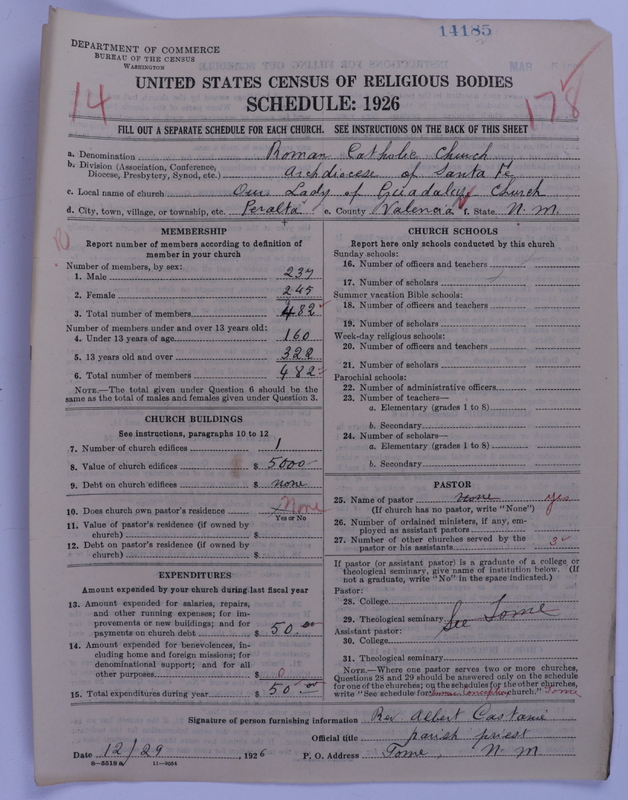 14185
DEPARTMENT OF COMMERCE
BUREAU OF THE CENSUS
WASHINGTON
14
178
UNITED STATES CENSUS OF RELIGIOUS BODIES
SCHEDULE: 1926
FILL OUT A SEPARATE SCHEDULE FOR EACH CHURCH. SEE INSTRUCTIONS ON THE BACK OF THIS SHEET
a. Denomination Roman Catholic Church
b. Division (Association, Conference, Diocese, Presbytery, Synod, etc.) Archdiocese of Santa Fe
c. Local name of church Our Lady of Guadalupe Church
d. City, town, village, or township, etc. Peralta e. County Valencia f. State N. M.
MEMBERSHIP
Report number of members according to definition of
member in your church
Number of members, by sex:
1. Male 237
2. Female 245
3. Total number of members 482
Number of members under and over 13 years old:
4. Under 13 years of age 160
5. 13 years old and over 322
6. Total number of members 482
NOTE.—The total given under Question 6 should be
the same as the total of males and females given under Question 3.
CHURCH BUILDINGS
See instructions, paragraphs 10 to 12
7. Number of church edifices 1
8. Value of church edifices $ 5000
9. Debt on church edifices $ none
10. Does church own pastor's residence None
Yes or No
11. Value of pastor's residence (if owned by
church) $
12. Debt on pastor's residence (if owned by
church) $
EXPENDITURES
Amount expended by your church during last fiscal year
13. Amount expended for salaries, repairs,
and other running expenses; for im-
provements or new buildings; and for
payments on church debt $ 50.00
14. Amount expended for benevolences, in-
cluding home and foreign missions; for
denominational support; and for all
other purposes $ 0
15. Total expenditures during year $ 50.00
CHURCH SCHOOLS
Report here only schools conducted by this church
Sunday schools:
16. Number of officers and teachers
17. Number of scholars
Summer vacation Bible schools:
18. Number of officers and teachers
19. Number of scholars
Week-day religious schools:
20. Number of officers and teachers
21. Number of scholars
Parochial schools:
22. Number of administrative officers
23. Number of teachers—
a. Elementary (grades 1 to 8)
b. Secondary
24. Number of scholars—
a. Elementary (grades 1 to 8)
b. Secondary
PASTOR
25. Name of pastor none yes
(If church has no pastor, write "None")
26. Number of ordained ministers, if any, em-
ployed as assistant pastors
27. Number of other churches served by the
pastor or his assistants 3
If pastor (or assistant pastor) is a graduate of a college or
theological seminary, give name of institution below. (If
not a graduate, write "No" in the space indicated.)
Pastor:
28. College
29. Theological seminary See Tome
Assistant pastor:
30. College
31. Theological seminary
NOTE.—Where one pastor serves two or more churches,
Questions 28 and 29 should be answered only on the schedule
for one of the churches; on the schedules for the other churches,
write "See schedule for Conception church." Tome
Signature of person furnishing information Rev Albert Castanie
Official title parish priest
Date 12/29, 1926 P. O. Address Tome, N M
8-5518a 11-9054